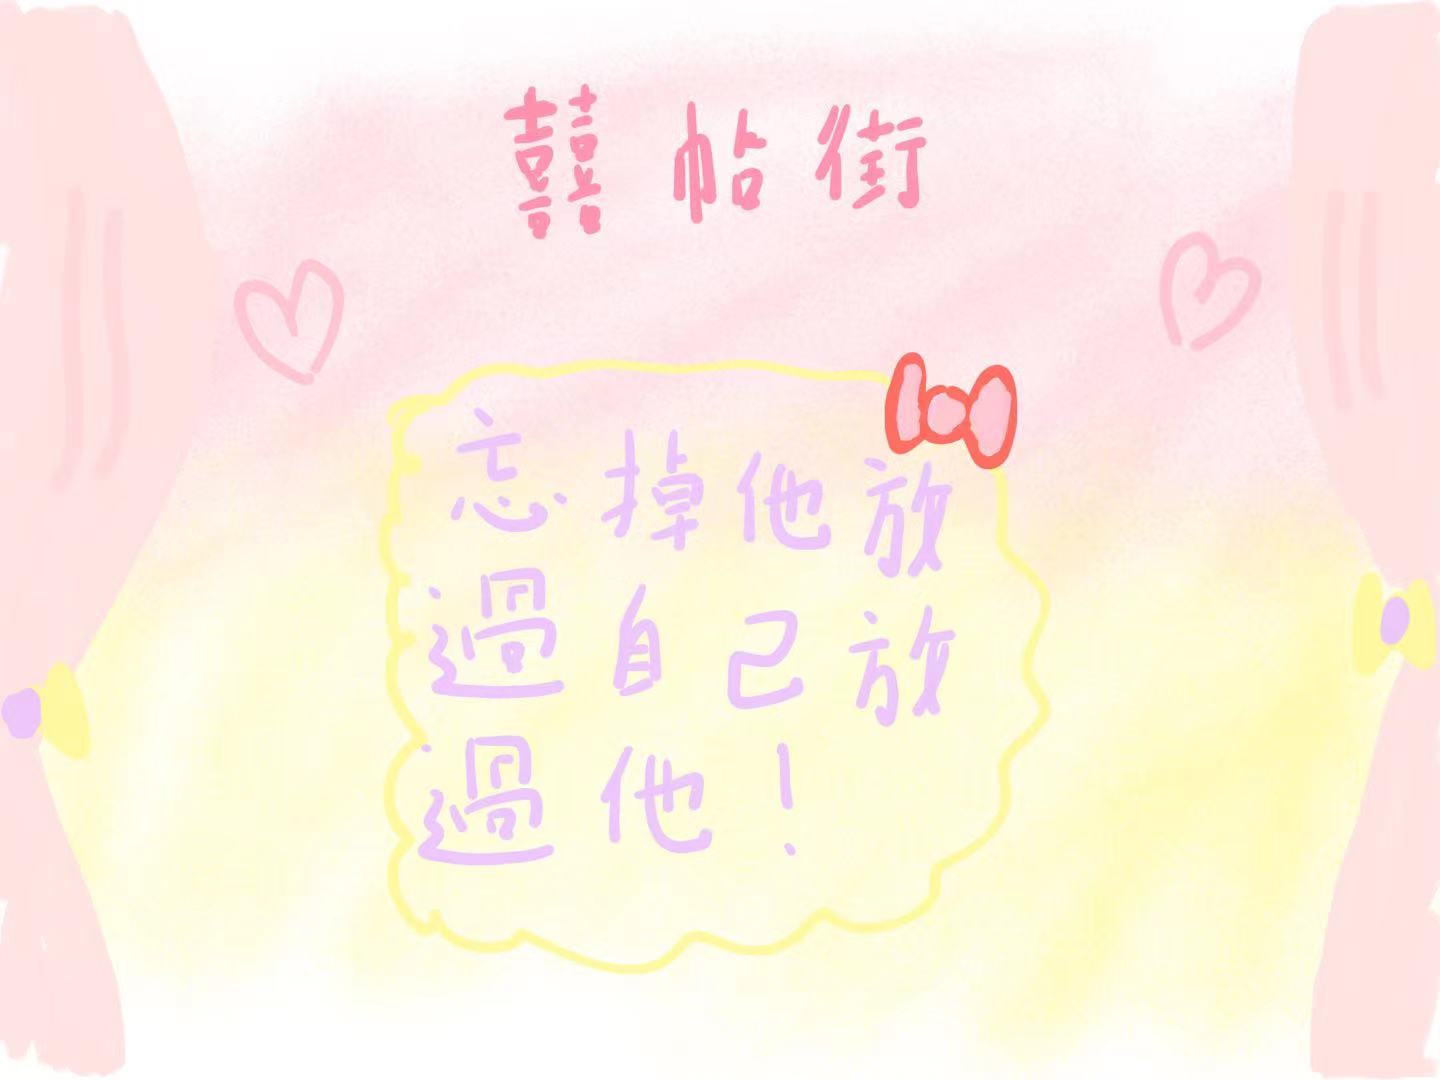 囍帖街
忘掉他放
過自己放
過他！